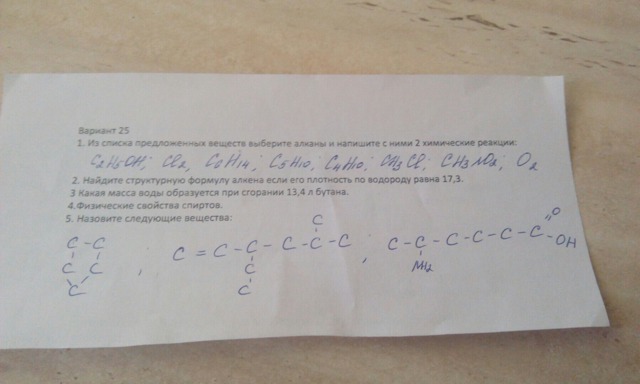 Вариант 25
1. Из списка предложенных веществ выберите алканы и напишите с ними 2 химические реакции:
C2H5OH; Cl2, C6H14, C5H10, C4H10, CH3Cl; CH3NO2; O2
2. Найдите структурную формулу алкена если его плотность по водороду равна 17,3.
3 Какая масса воды образуется при сгорании 13,4 л бутана.
4.Физические свойства спиртов.
5. Назовите следующие вещества:
C O
C - C ; C = C - C - C - C - C ; C - C - C - C - C - C - OH
C C C NH2
C C